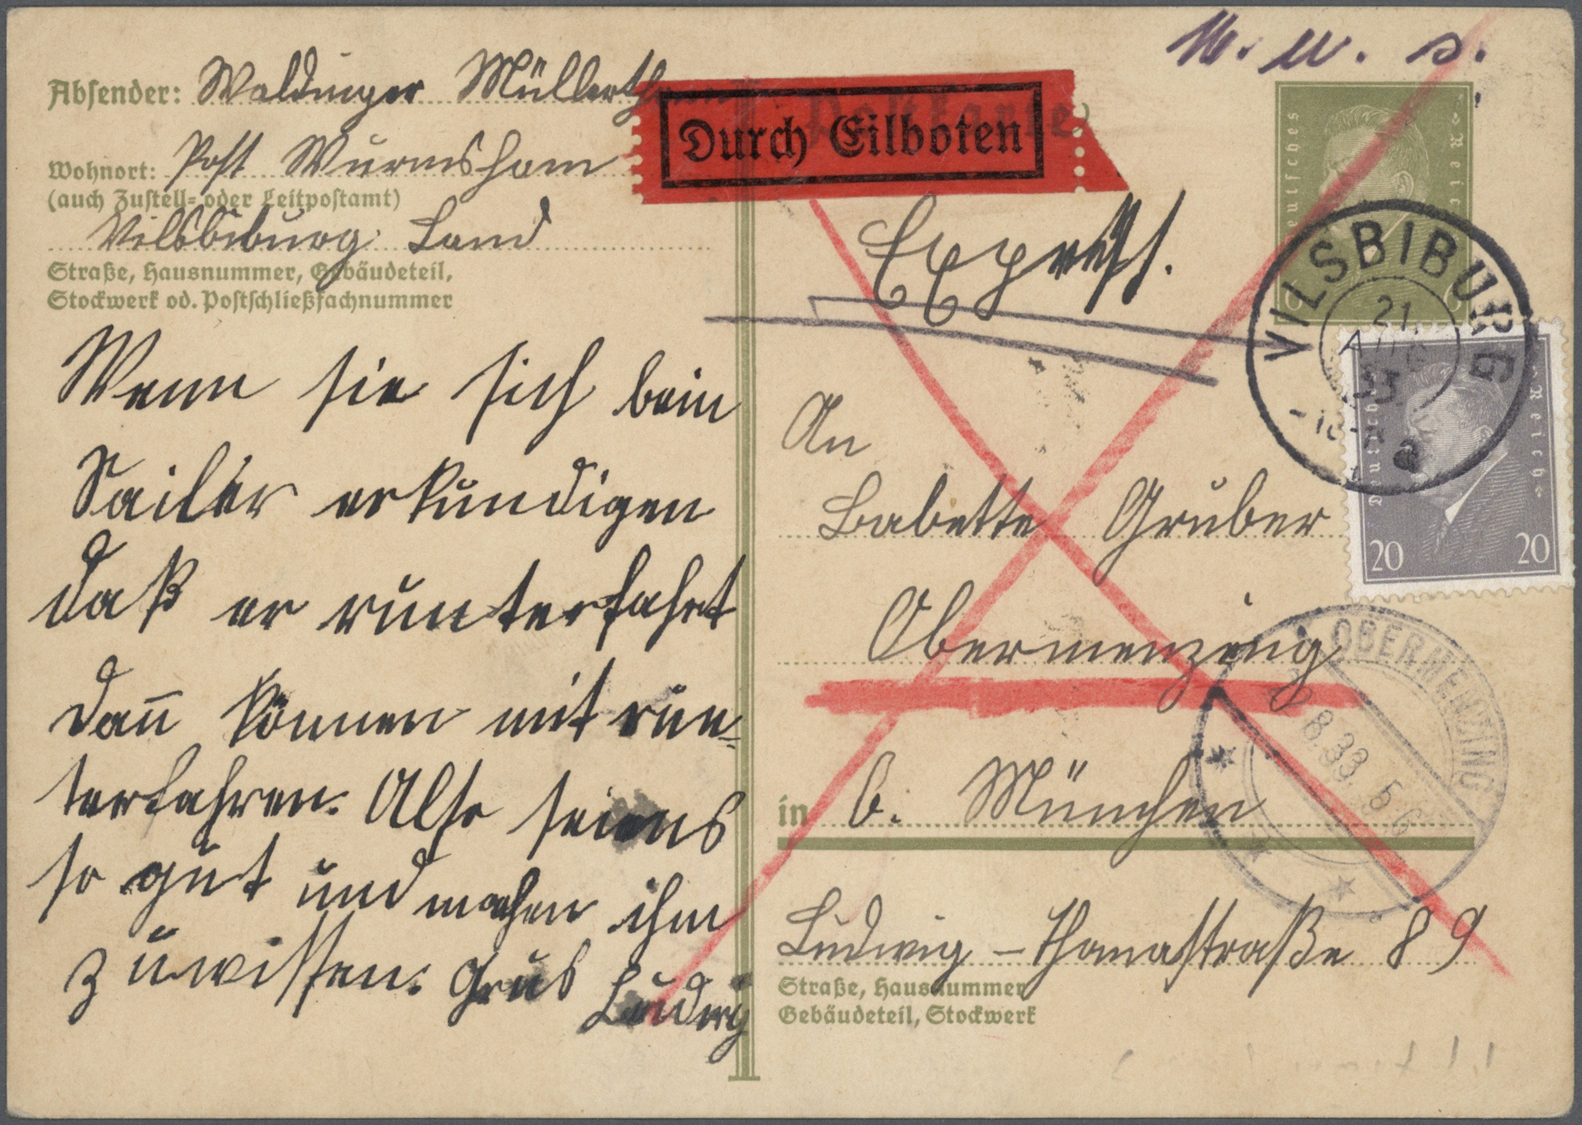 Absender: Waldinger Müllerthann
Wohnort: Post Wurmsham
(auch Zustell- oder Leitpostamt)
Vilsbiburg Land
Straße, Hausnummer, Gebäudeteil,
Stockwerk od. Postschließfachnummer
Wenn sie sich beim
Sailer erkundigen
daß er runterfahrt
dañ können mit run-
terfahren. Also seiens
so gut und machen ihm
zuwissen. Grus Ludwig
Postkarte
Durch Eilboten
Express.
Deutsches Reich
VILSBIBURG
21
AUG
33
Deutsches Reich
20 20
An
Babette Gruber
Obermenzing
in b. München
Ludwig-Thomastraße 89
Straße, Hausnummer
Gebäudeteil, Stockwerk
OBERMENZING
8.33.5-6